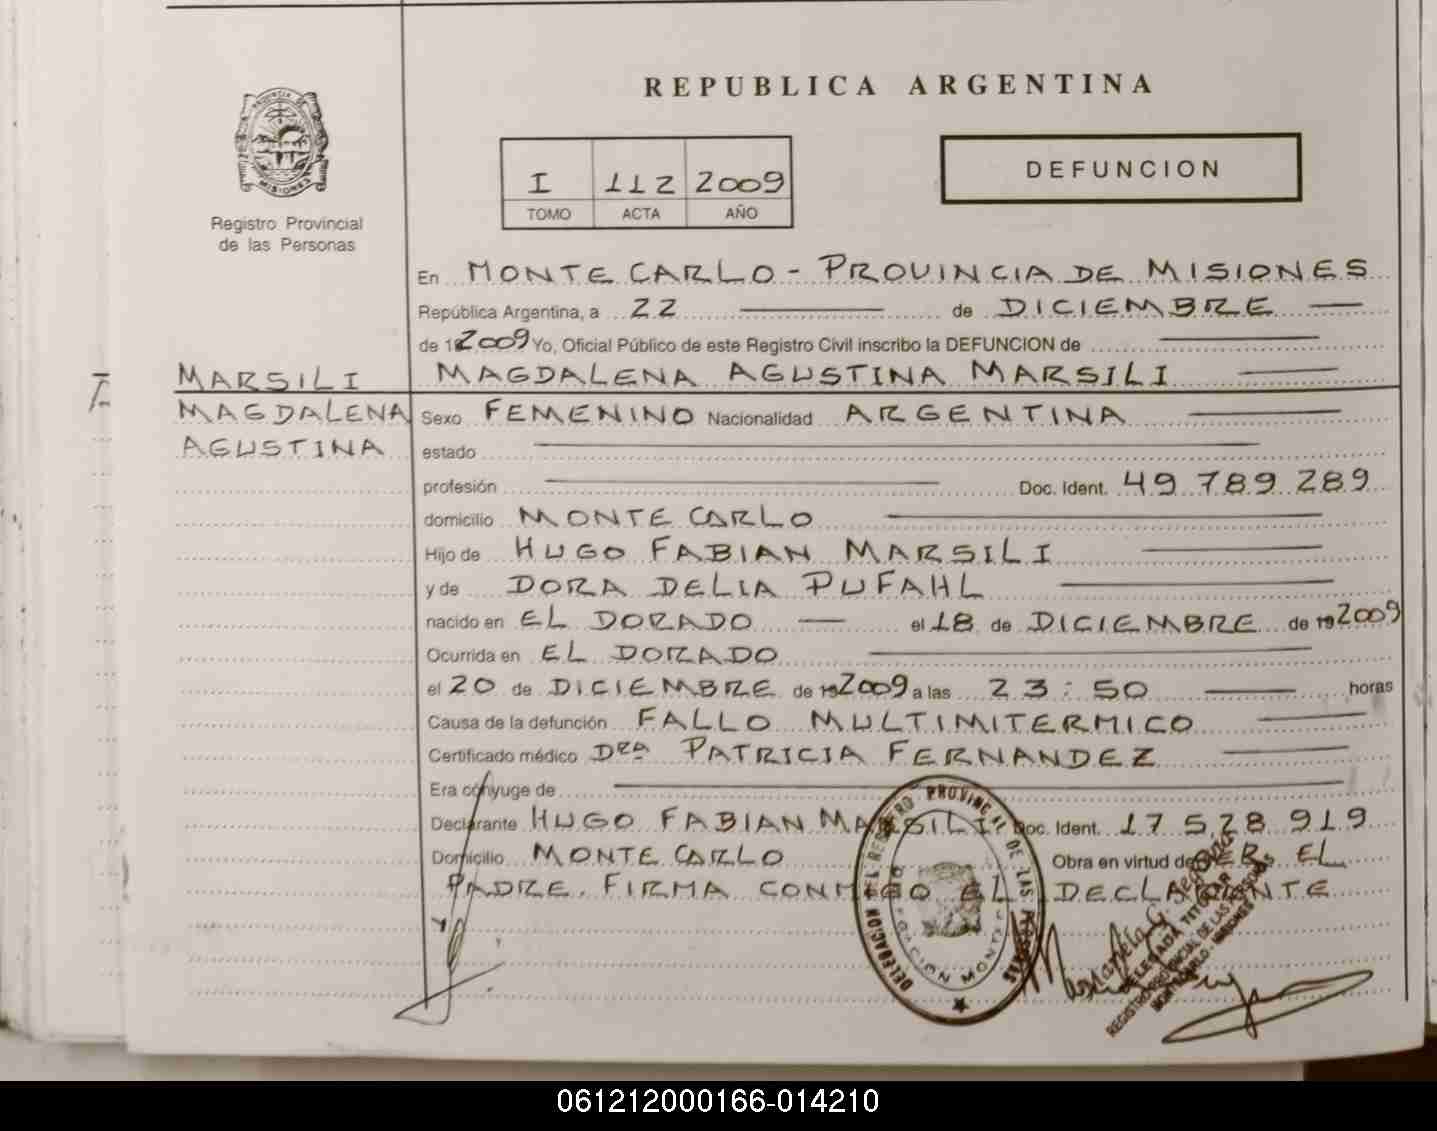 REPUBLICA ARGENTINA
PROVINCIA DE
MISIONES
Registro Provincial
de las Personas
I 112 2009
TOMO ACTA AÑO
DEFUNCION
En MONTE CARLO - PROVINCIA DE MISIONES
República Argentina, a 22 de DICIEMBRE
de 2009 Yo, Oficial Público de este Registro Civil inscribo la DEFUNCION de
MARSILI
MAGDALENA
AGUSTINA
MAGDALENA AGUSTINA MARSILI
Sexo FEMENINO Nacionalidad ARGENTINA
estado
profesión Doc. Ident. 49 789 289
domicilio MONTE CARLO
Hijo de HUGO FABIAN MARSILI
y de DORA DELIA PUFAHL
nacido en EL DORADO el 18 de DICIEMBRE de 19 2009
Ocurrida en EL DORADO
el 20 de DICIEMBRE de 19 2009 a las 23:50 horas
Causa de la defunción FALLO MULTIMITERMICO
Certificado médico Dra PATRICIA FERNANDEZ
Era cónyuge de
Declarante HUGO FABIAN MARSILI Doc. Ident. 17 528 919
Domicilio MONTE CARLO Obra en virtud de SER EL
PADRE. FIRMA CONMIGO EL DECLARANTE
DELEGACION DEL REGISTRO PROVINCIAL DE LAS PERSONAS
DELEGADA TITULAR
REGISTRO PROVINCIAL DE LAS PERSONAS
MONTECARLO - MISIONES
061212000166-014210